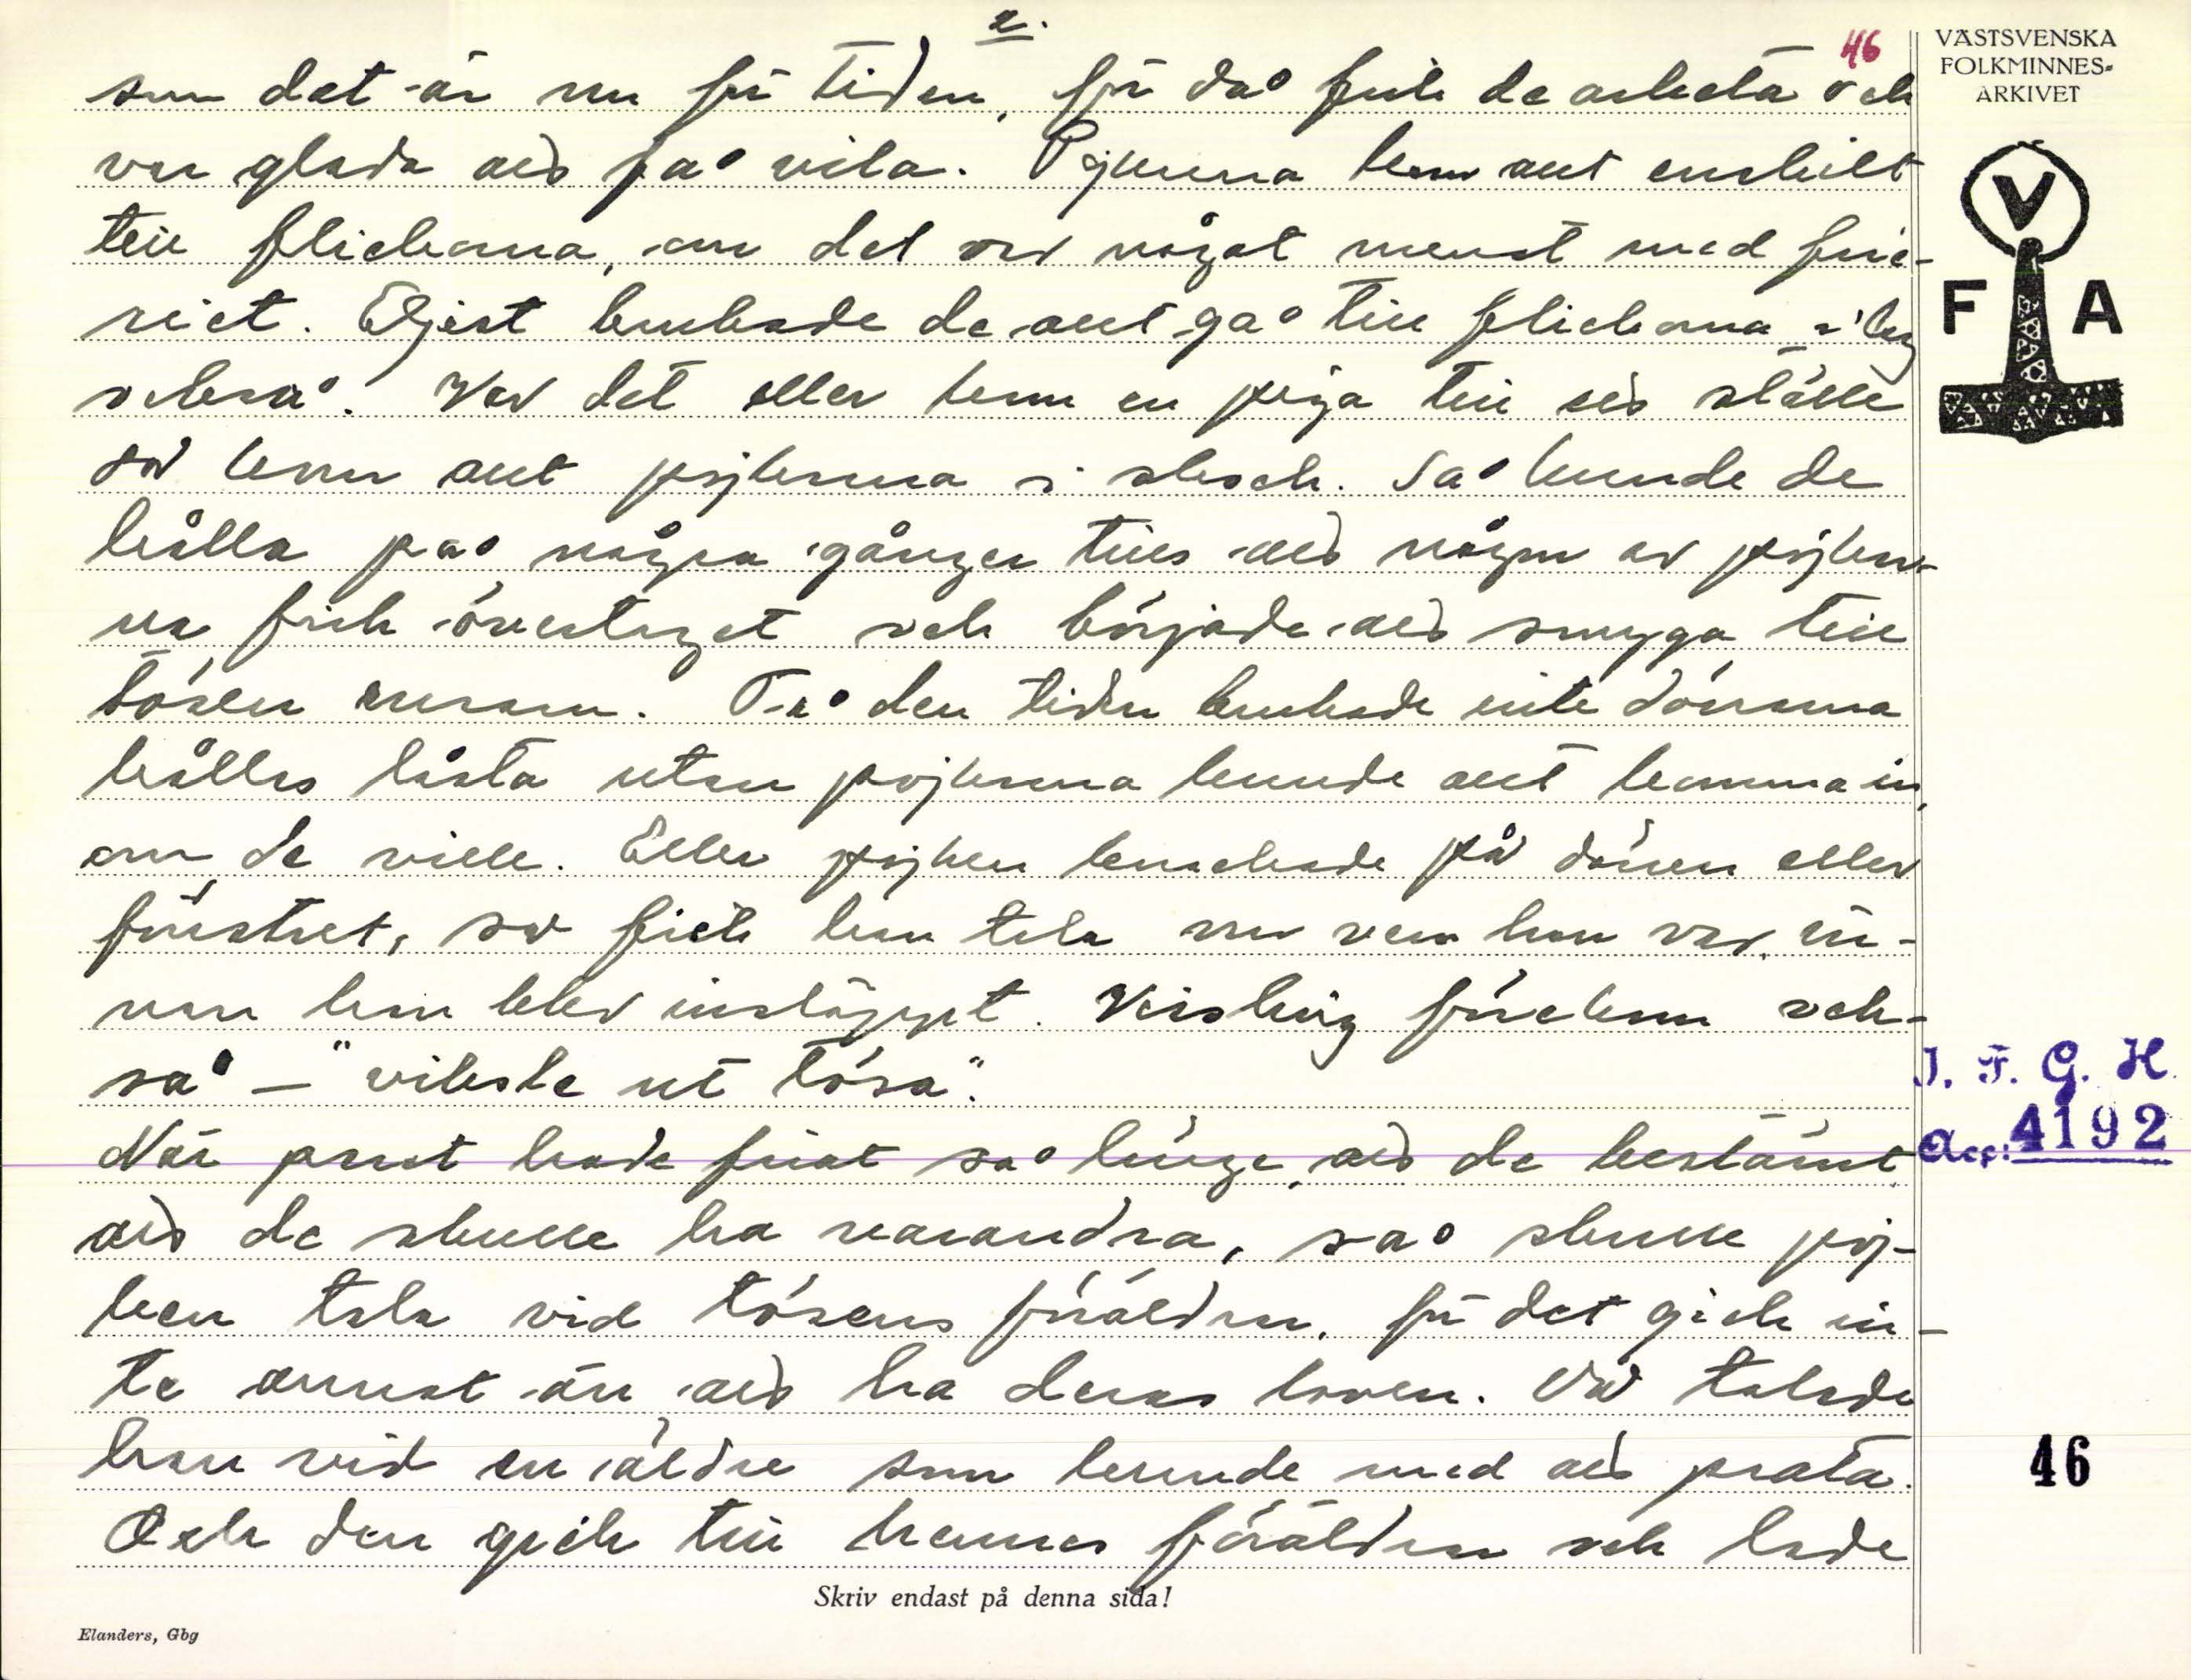 2.
46
som det är nu för tiden, för då fick de arbeta och
var glada att få vila. Pojkarna kom ant enskilt
till flickorna, om det var något menat med frie-
riet. Eljest brukade de ant gå till flickorna i lag
också. Var det eller kom en piga till ett ställe
så kom ant pojkarna i skock. Så kunde de
hålla på några gånger tills att någon av pojkar-
na fick övertaget och började att smyga till
tösen ensam. På den tiden brukade inte dörrarna
hållas låsta utan pojkarna kunde ant komma in,
om de ville. Eller pojken knackade på dörren eller
fönstret, så fick han tala om vem han var, in-
nan han blev insläppt. Visslning förekom ock-
så – "vissla ut tösa".
När paret hade friat så länge, att de bestämt
att de skulle ha varandra, så skulle poj-
ken tala vid tösens föräldrar, för det gick in-
te annat än att ha deras loven. Då talade
han vid en äldre som kunde med att prata.
Och den gick till hennes föräldrar och lade
Skriv endast på denna sida!
Elanders, Gbg
VÄSTSVENSKA
FOLKMINNES-
ARKIVET
V
F A
I. F. G. H.
Acc: 4192
46